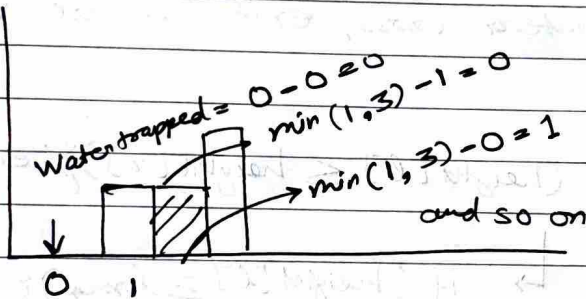 Water trapped = 0 - 0 = 0
min (1,3) - 1 = 0
min (1, 3) - 0 = 1
and so on
0 1